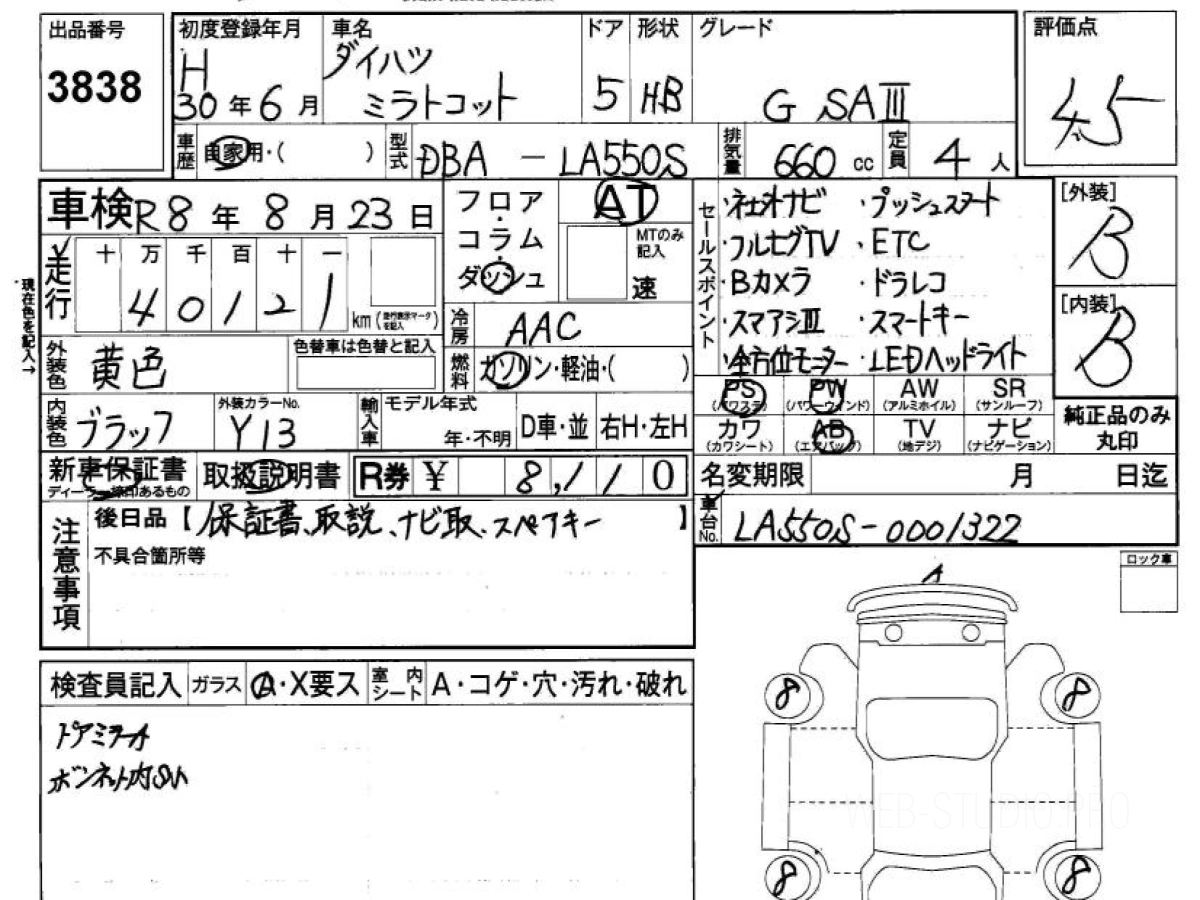 出品番号
3838
初度登録年月
H
30年6月
車名
ダイハツ
ミラトコット
ドア
5
形状
HB
グレード
G SAⅢ
評価点
4.5
車歴
自家用・( )
型式
DBA - LA550S
排気量
660 cc
定員
4人
車検 R8年8月23日
フロア・コラム・ダッシュ
AT
MTのみ記入
速
セールスポイント
・社外ナビ ・プッシュスタート
・フルセグTV ・ETC
・Bカメラ ・ドラレコ
・スマアシⅢ ・スマートキー
・全方位モニター ・LEDヘッドライト
[外装]
B
[内装]
B
現在色を記入→
¥走行
十 万 千 百 十 一
4 0 1 2 1
km (走行表示マークを記入)
冷房
AAC
外装色
黄色
色替車は色替と記入
燃料
ガソリン・軽油・( )
PS (パワステ) PW (パワーウインド) AW (アルミホイル) SR (サンルーフ)
カワ (カワシート) AB (エアバッグ) TV (地デジ) ナビ (ナビゲーション)
純正品のみ丸印
内装色
ブラック
外装カラーNo.
Y13
輸入車
モデル年式
年・不明
D車・並
右H・左H
新車保証書
取扱説明書
R券 ¥ 8,110
名変期限 月 日迄
注意事項
後日品【保証書、取説、ナビ取、スペアキー】
不具合箇所等
車台No.
LA550S-0001322
ロック車
A
検査員記入
ガラス
A・X要ス
室内シート
A・コゲ・穴・汚れ・破れ
ドアミラーA
8 8
WEB-STUDIO.PRO
8 8